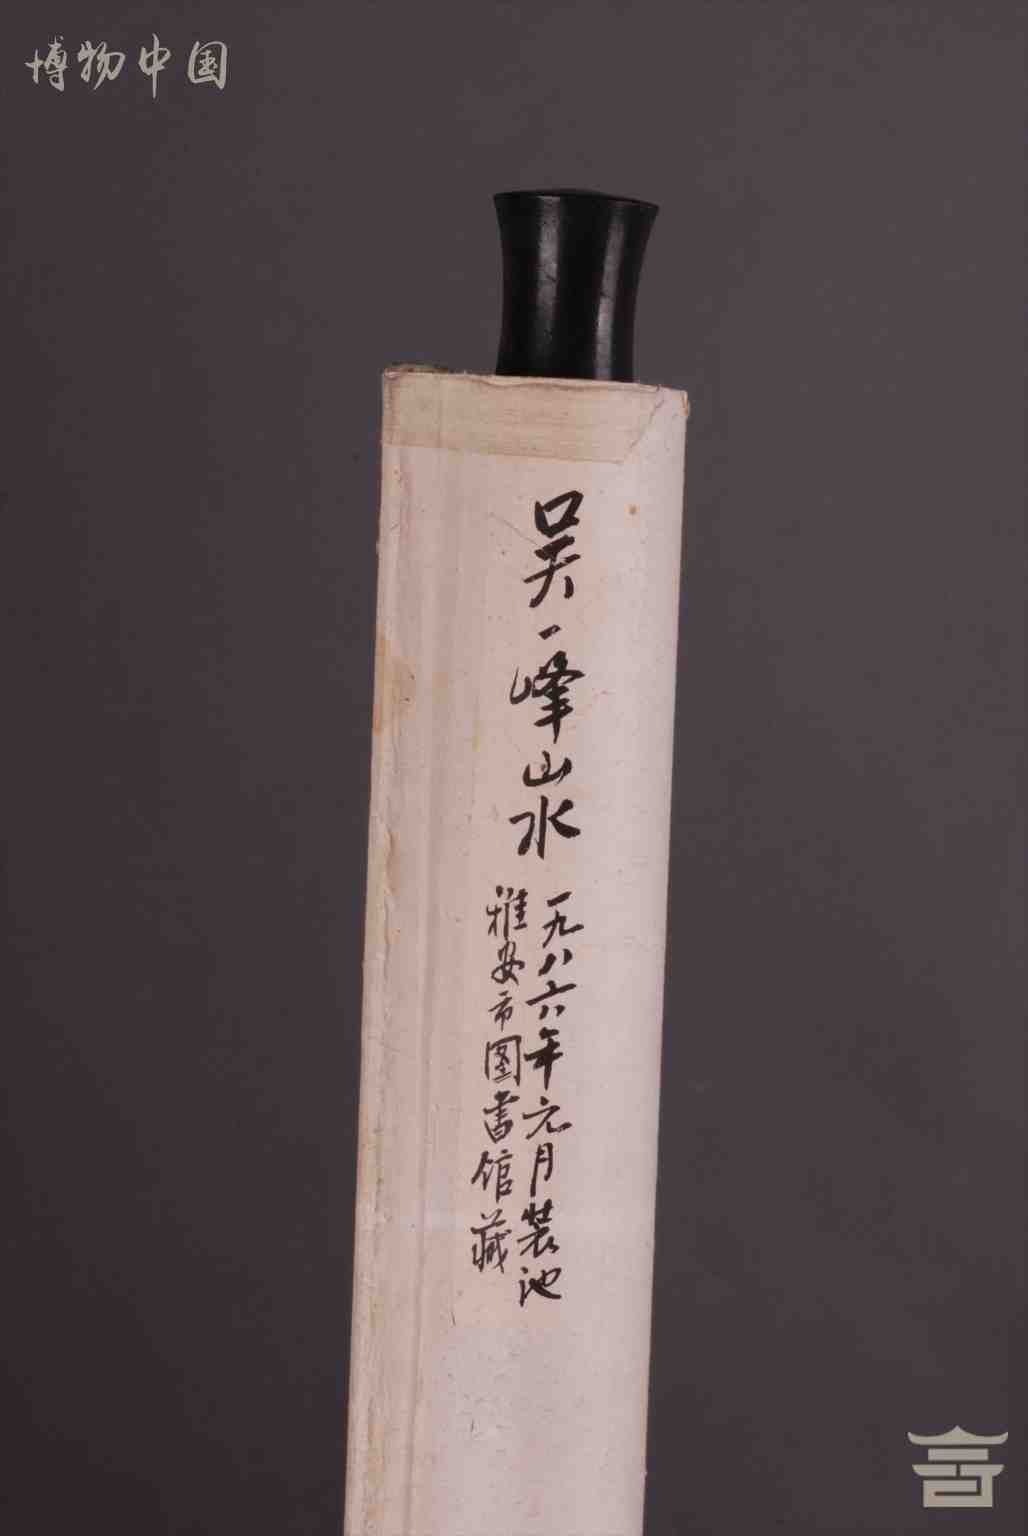 博物中国
吴一峰山水
一九八六年元月装池
雅安市图书馆藏